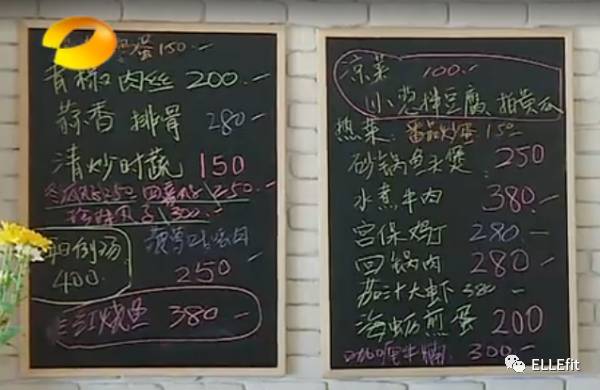 蛋 150.-
青椒肉丝 200.-
蒜香排骨 280.-
清炒时蔬 150
250 四喜 250.-
300.-
日例汤 400.
菠萝咕咾肉 250
红烧鱼 380.-
凉菜 100.-
小葱拌豆腐、拍黄瓜
热菜: 番茄炒蛋 150.-
砂锅鱼头煲 250
水煮牛肉 380.-
宫保鸡丁 280.-
回锅肉 280.-
茄汁大虾 380.-
海蛎煎蛋 200
咖喱牛腩 300.-
ELLEfit